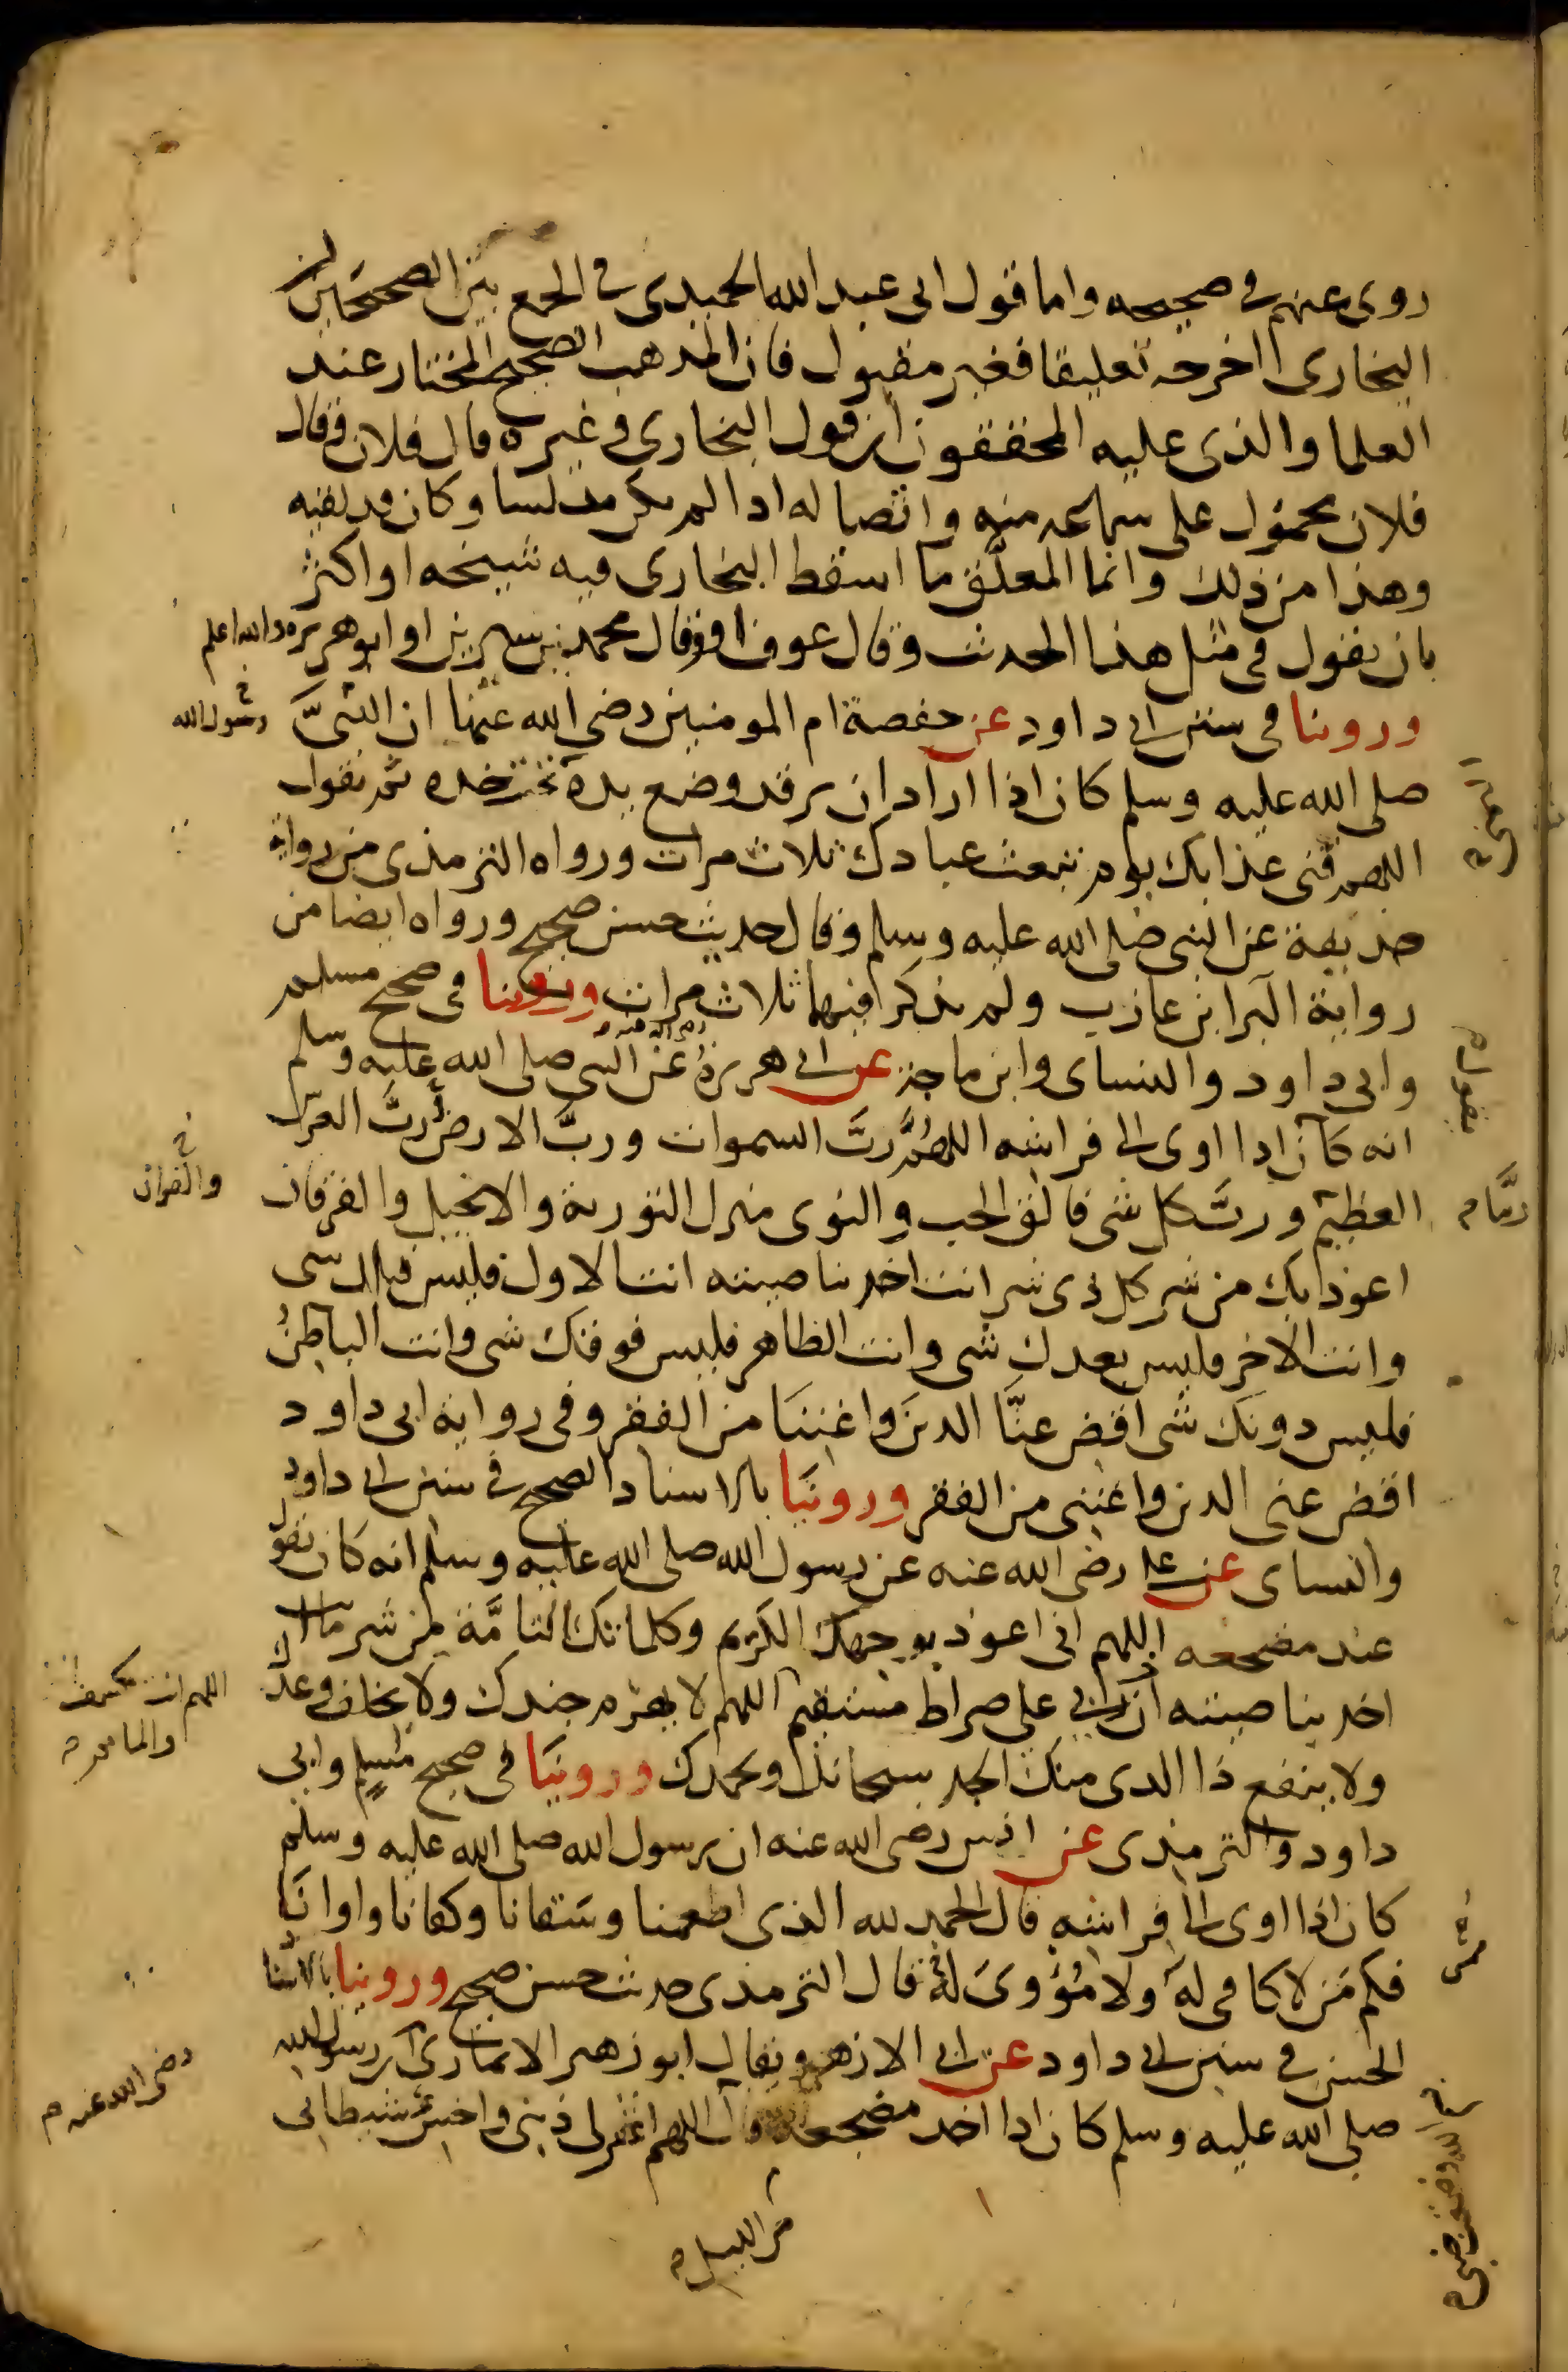 روى عنهم في صحيحه واما قول ابي عبد الله الحميدي في الجمع بين الصحيحين ان
البخاري اخرجه تعليقا فغير مقبول فان المذهب الصحيح المختار عند
العلما والذي عليه المحققون ان قول البخاري وغيره قال فلان وقال
فلان محمول على سماعه منه واتصاله اذا لم يكن مدلسا وكان قد لقيه
وهذا من ذلك وانما المعلَّق ما اسقط البخاري فيه شيخه او اكثر
بان يقول في مثل هذا الحديث وقال عوف او وقال محمد بن سيرين او ابو هريره والله اعلم
وروينا في سنن ابي داود عن حفصة ام المومنين رضي الله عنها ان النبيَّ
رسول الله
صلى الله عليه وسلم كان اذا اراد ان يرقد وضع يده تحت خده ثم يقول
اللهم قني عذابك يوم تبعث عبادك ثلاث مرات ورواه الترمذي من رواية
حذيفة عن النبي صلى الله عليه وسلم وقال حديث حسن صحيح ورواه ايضا من
رواية البرا بن عازب ولم يذكر فيهما ثلاث مرات وروينا في صحيح مسلم
وابي داود والنساي وابن ماجة عن ابي هريرة رضي الله عنه عن النبي صلى الله عليه وسلم
انه كان اذا اوى الى فراشه اللهمَّ ربَّ السموات وربَّ الارض ربَّ العرش
العظيم وربَّ كل شي فالق الحب والنوى منزل التورية والانجيل والفرقان
والقران
ربَّنا م
اعوذ بك من شر كل ذي شر انت اخذ بناصيته انت الاول فليس قبلك شي
وانت الاخر فليس بعدك شي وانت الظاهر فليس فوقك شي وانت الباطنُ
فليس دونك شي اقض عنَّا الدينَ واغننا من الفقر وفي رواية ابي داود
اقض عني الدين واغنني من الفقر وروينا بالاسناد الصحيح في سنن ابي داود
والنساي عن علي رضي الله عنه عن رسول الله صلى الله عليه وسلم انه كان يقول
عند مضجعه اللهم اني اعوذ بوجهك الكريم وكلماتك التامَّة من شر ما انت
اخذ بناصيته اللهم لا يهزم جندك ولا يخلف وعدك
اللهم انت تكشف
والماثم
ولا ينفع ذا الجد منك الجد سبحانك وبحمدك وروينا في صحيح مسلم وابي
داود والترمذي عن انس رضي الله عنه ان رسول الله صلى الله عليه وسلم
كان اذا اوى الى فراشه قال الحمد لله الذي اطعمنا وسَقانا وكفانا واوانَا
فكم مَن لا كافي له ولا مُؤْوِيَ له قال الترمذي حديث حسن صحيح وروينا بالاسناد
الحسن في سنن ابي داود عن ابي الازهر ويقال ابو زهير الانماري ان رسول الله
رضي الله عنه م
صلى الله عليه وسلم كان اذا اخذ مضجعه قال اللهم اغفر لي ذنبي واخسئ شيطاني
من الليل م